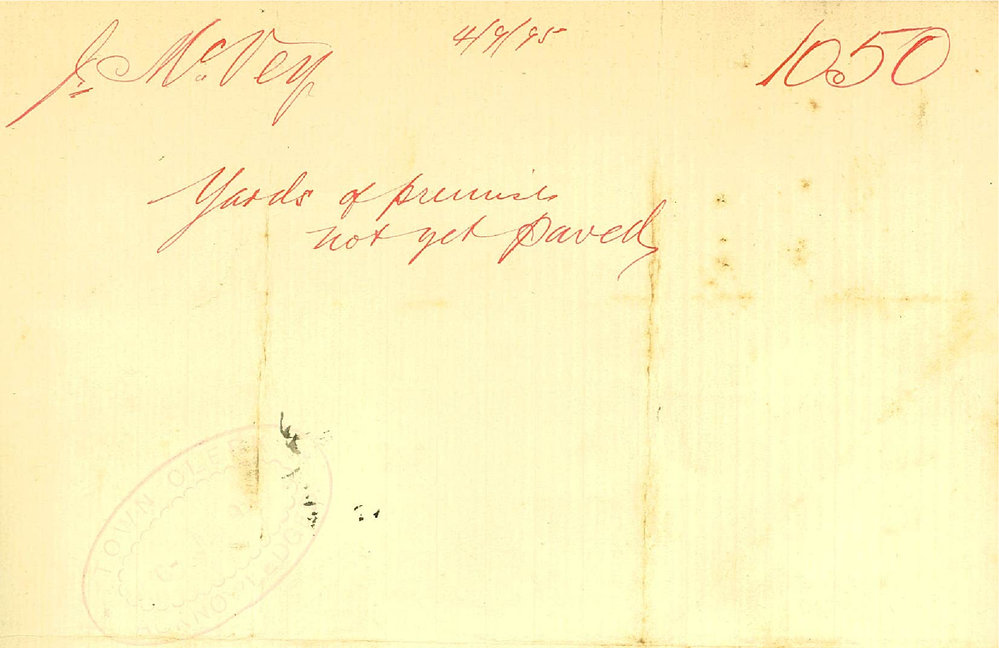 J. McVey 4/9/95 1050
Yards of premises
not yet paved
TOWN CLERK
ACKNOWLEDGED